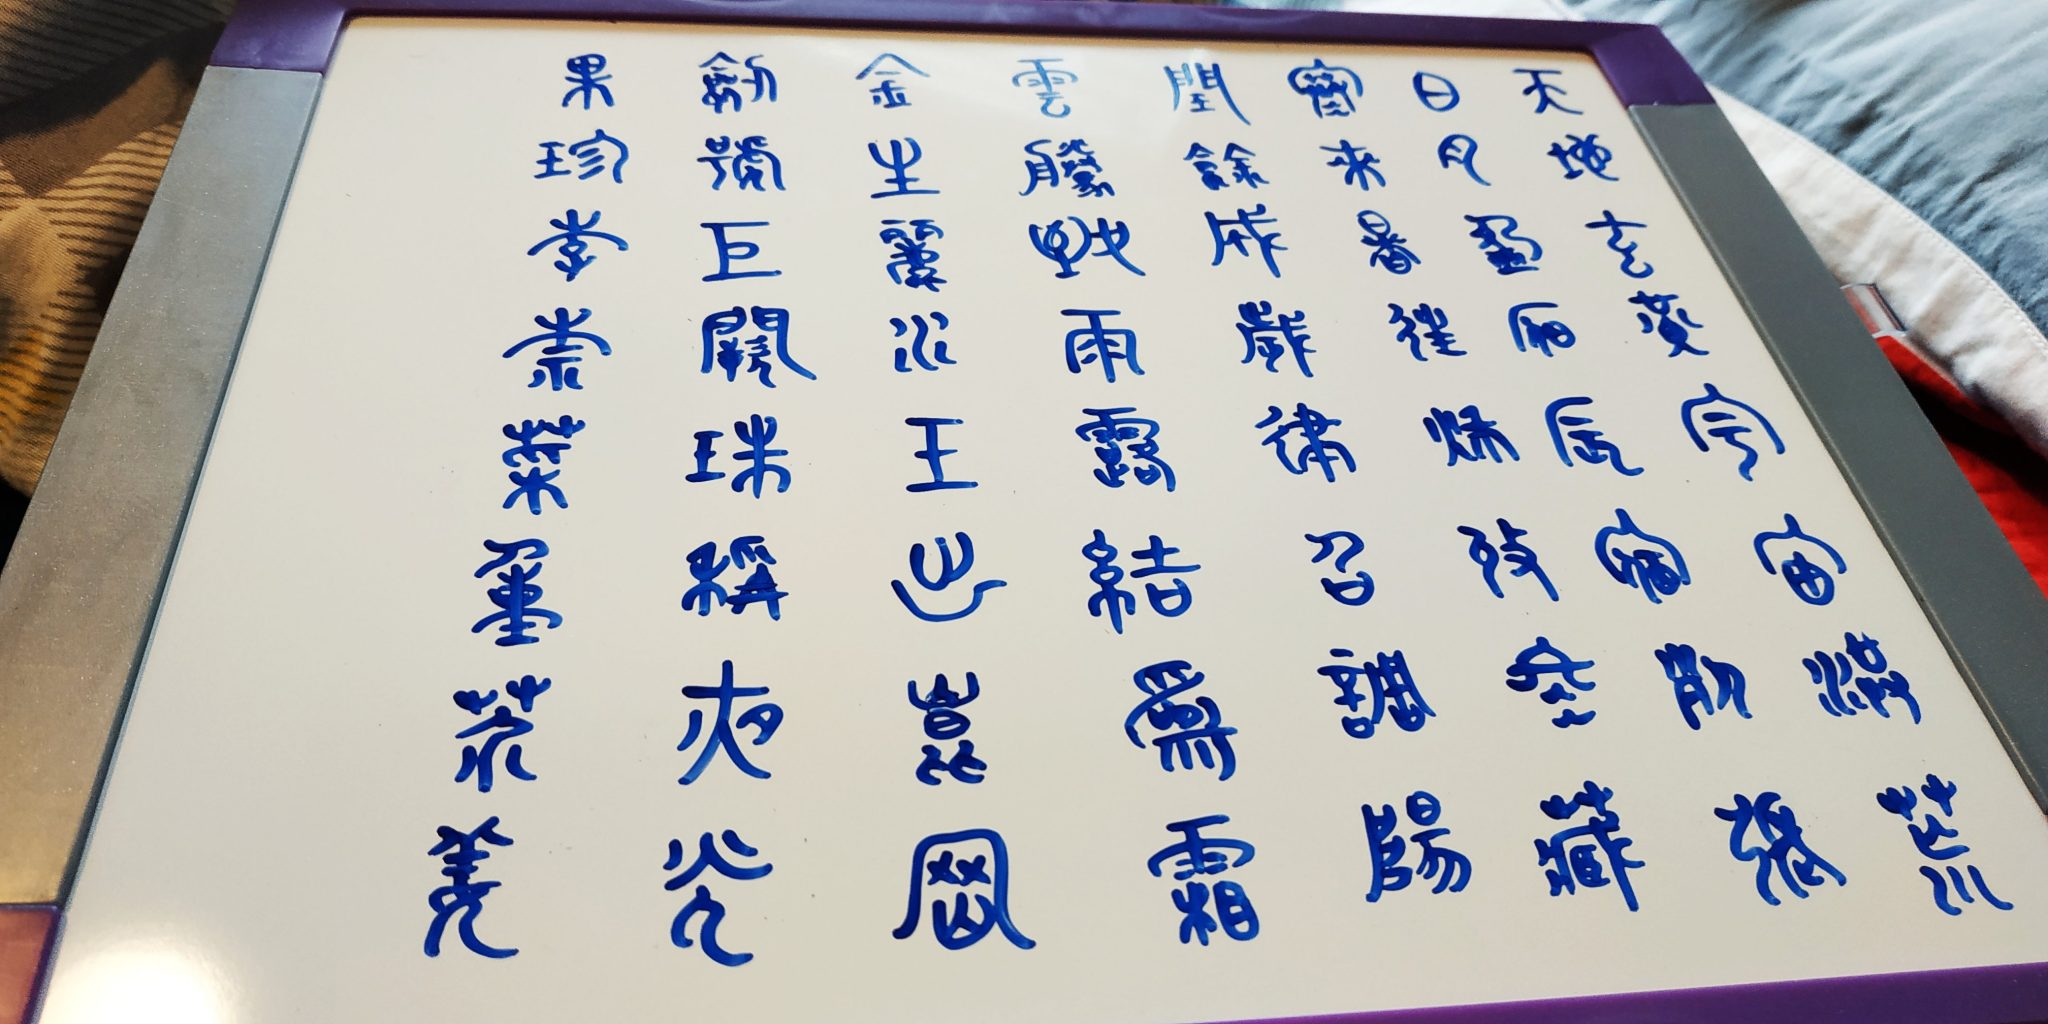 天地玄黃宇宙洪荒
日月盈昃辰宿列張
寒來暑往秋收冬藏
閏餘成歲律召調陽
雲騰致雨露結爲霜
金生麗水玉出崑岡
劍號巨闕珠稱夜光
果珍李柰菜重芥薑